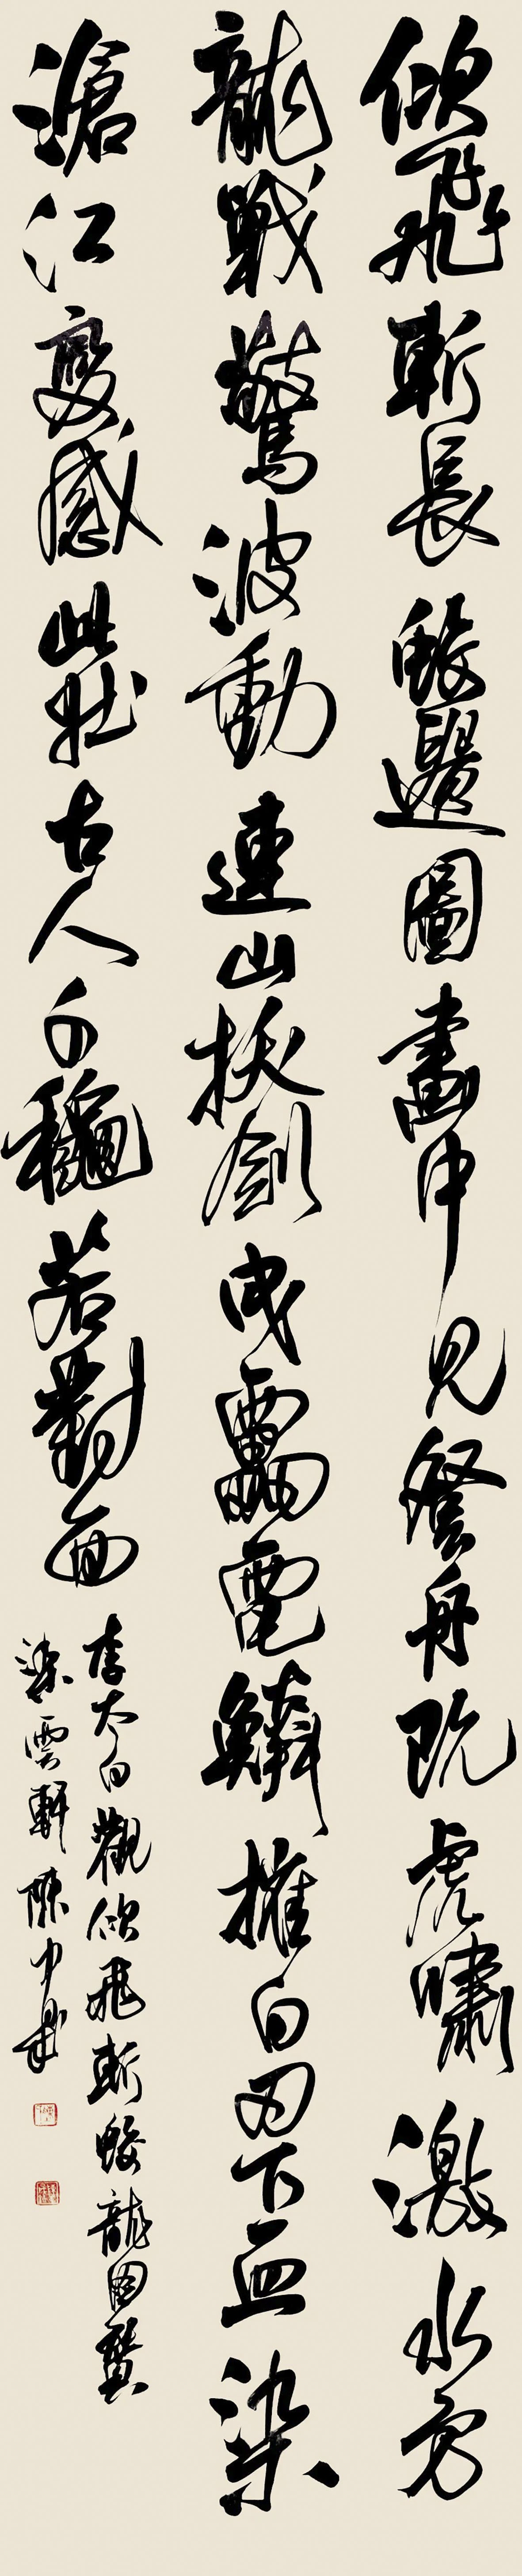 佽飛斬長蛟遺圖畫中見登舟既虎嘯激水方
龍戰驚波動連山拔劍曳靁電鱗摧白刃下血染
滄江變感此壯古人千穐若對面
李太白觀佽飛斬蛟龍图贊
染雲軒陳中